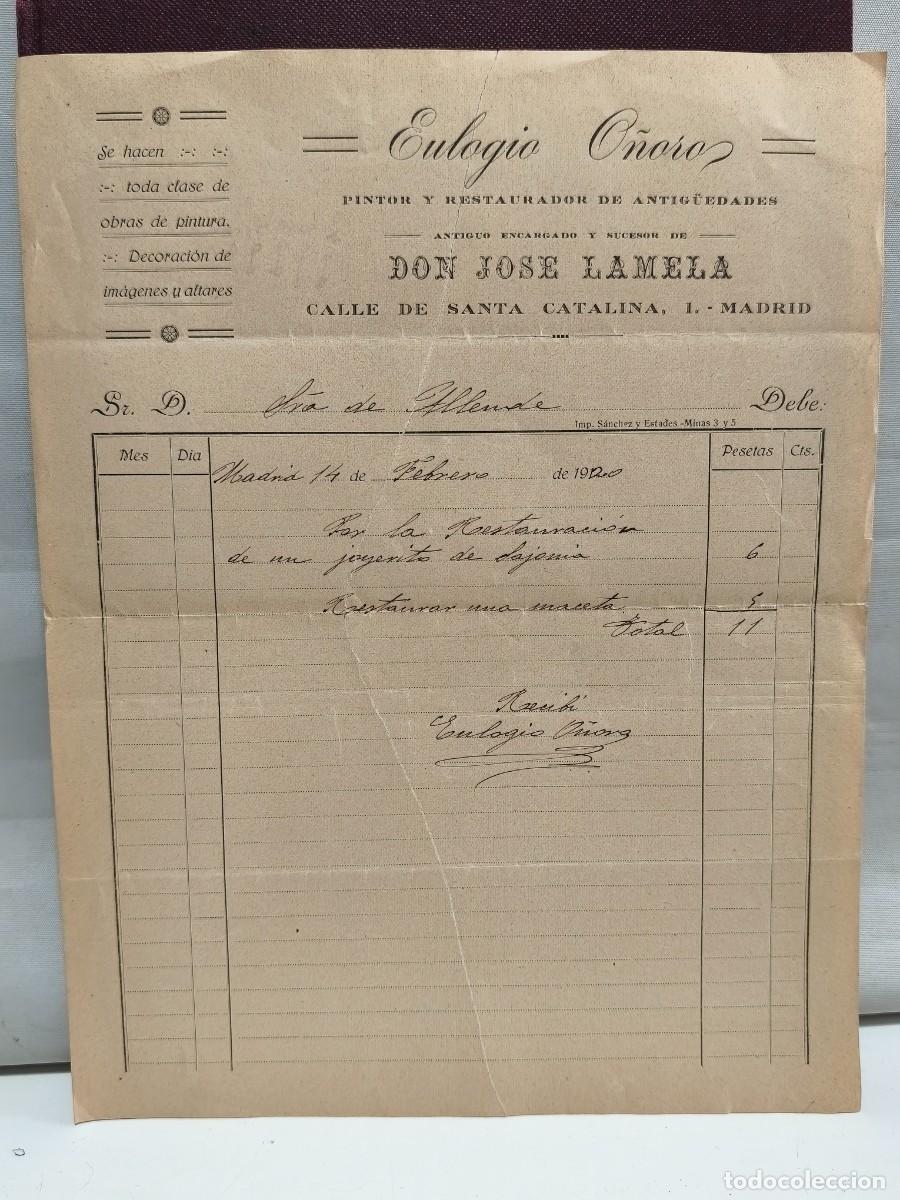 Se hacen :-: :-:
:-: toda clase de
obras de pintura.
:-: Decoración de
imágenes y altares
Eulogio Oñoro
PINTOR Y RESTAURADOR DE ANTIGÜEDADES
ANTIGUO ENCARGADO Y SUCESOR DE
DON JOSE LAMELA
CALLE DE SANTA CATALINA, 1. - MADRID
Sr. D. Sra de Allende Debe:
Imp. Sánchez y Estades -Minas 3 y 5
Mes Dia Pesetas Cts.
Madrid 14 de Febrero de 1920
Por la Restauración
de un joyerito de Sajonia 6
Restaurar una maceta 5
Total 11
Recibí
Eulogio Oñoro
todocoleccion